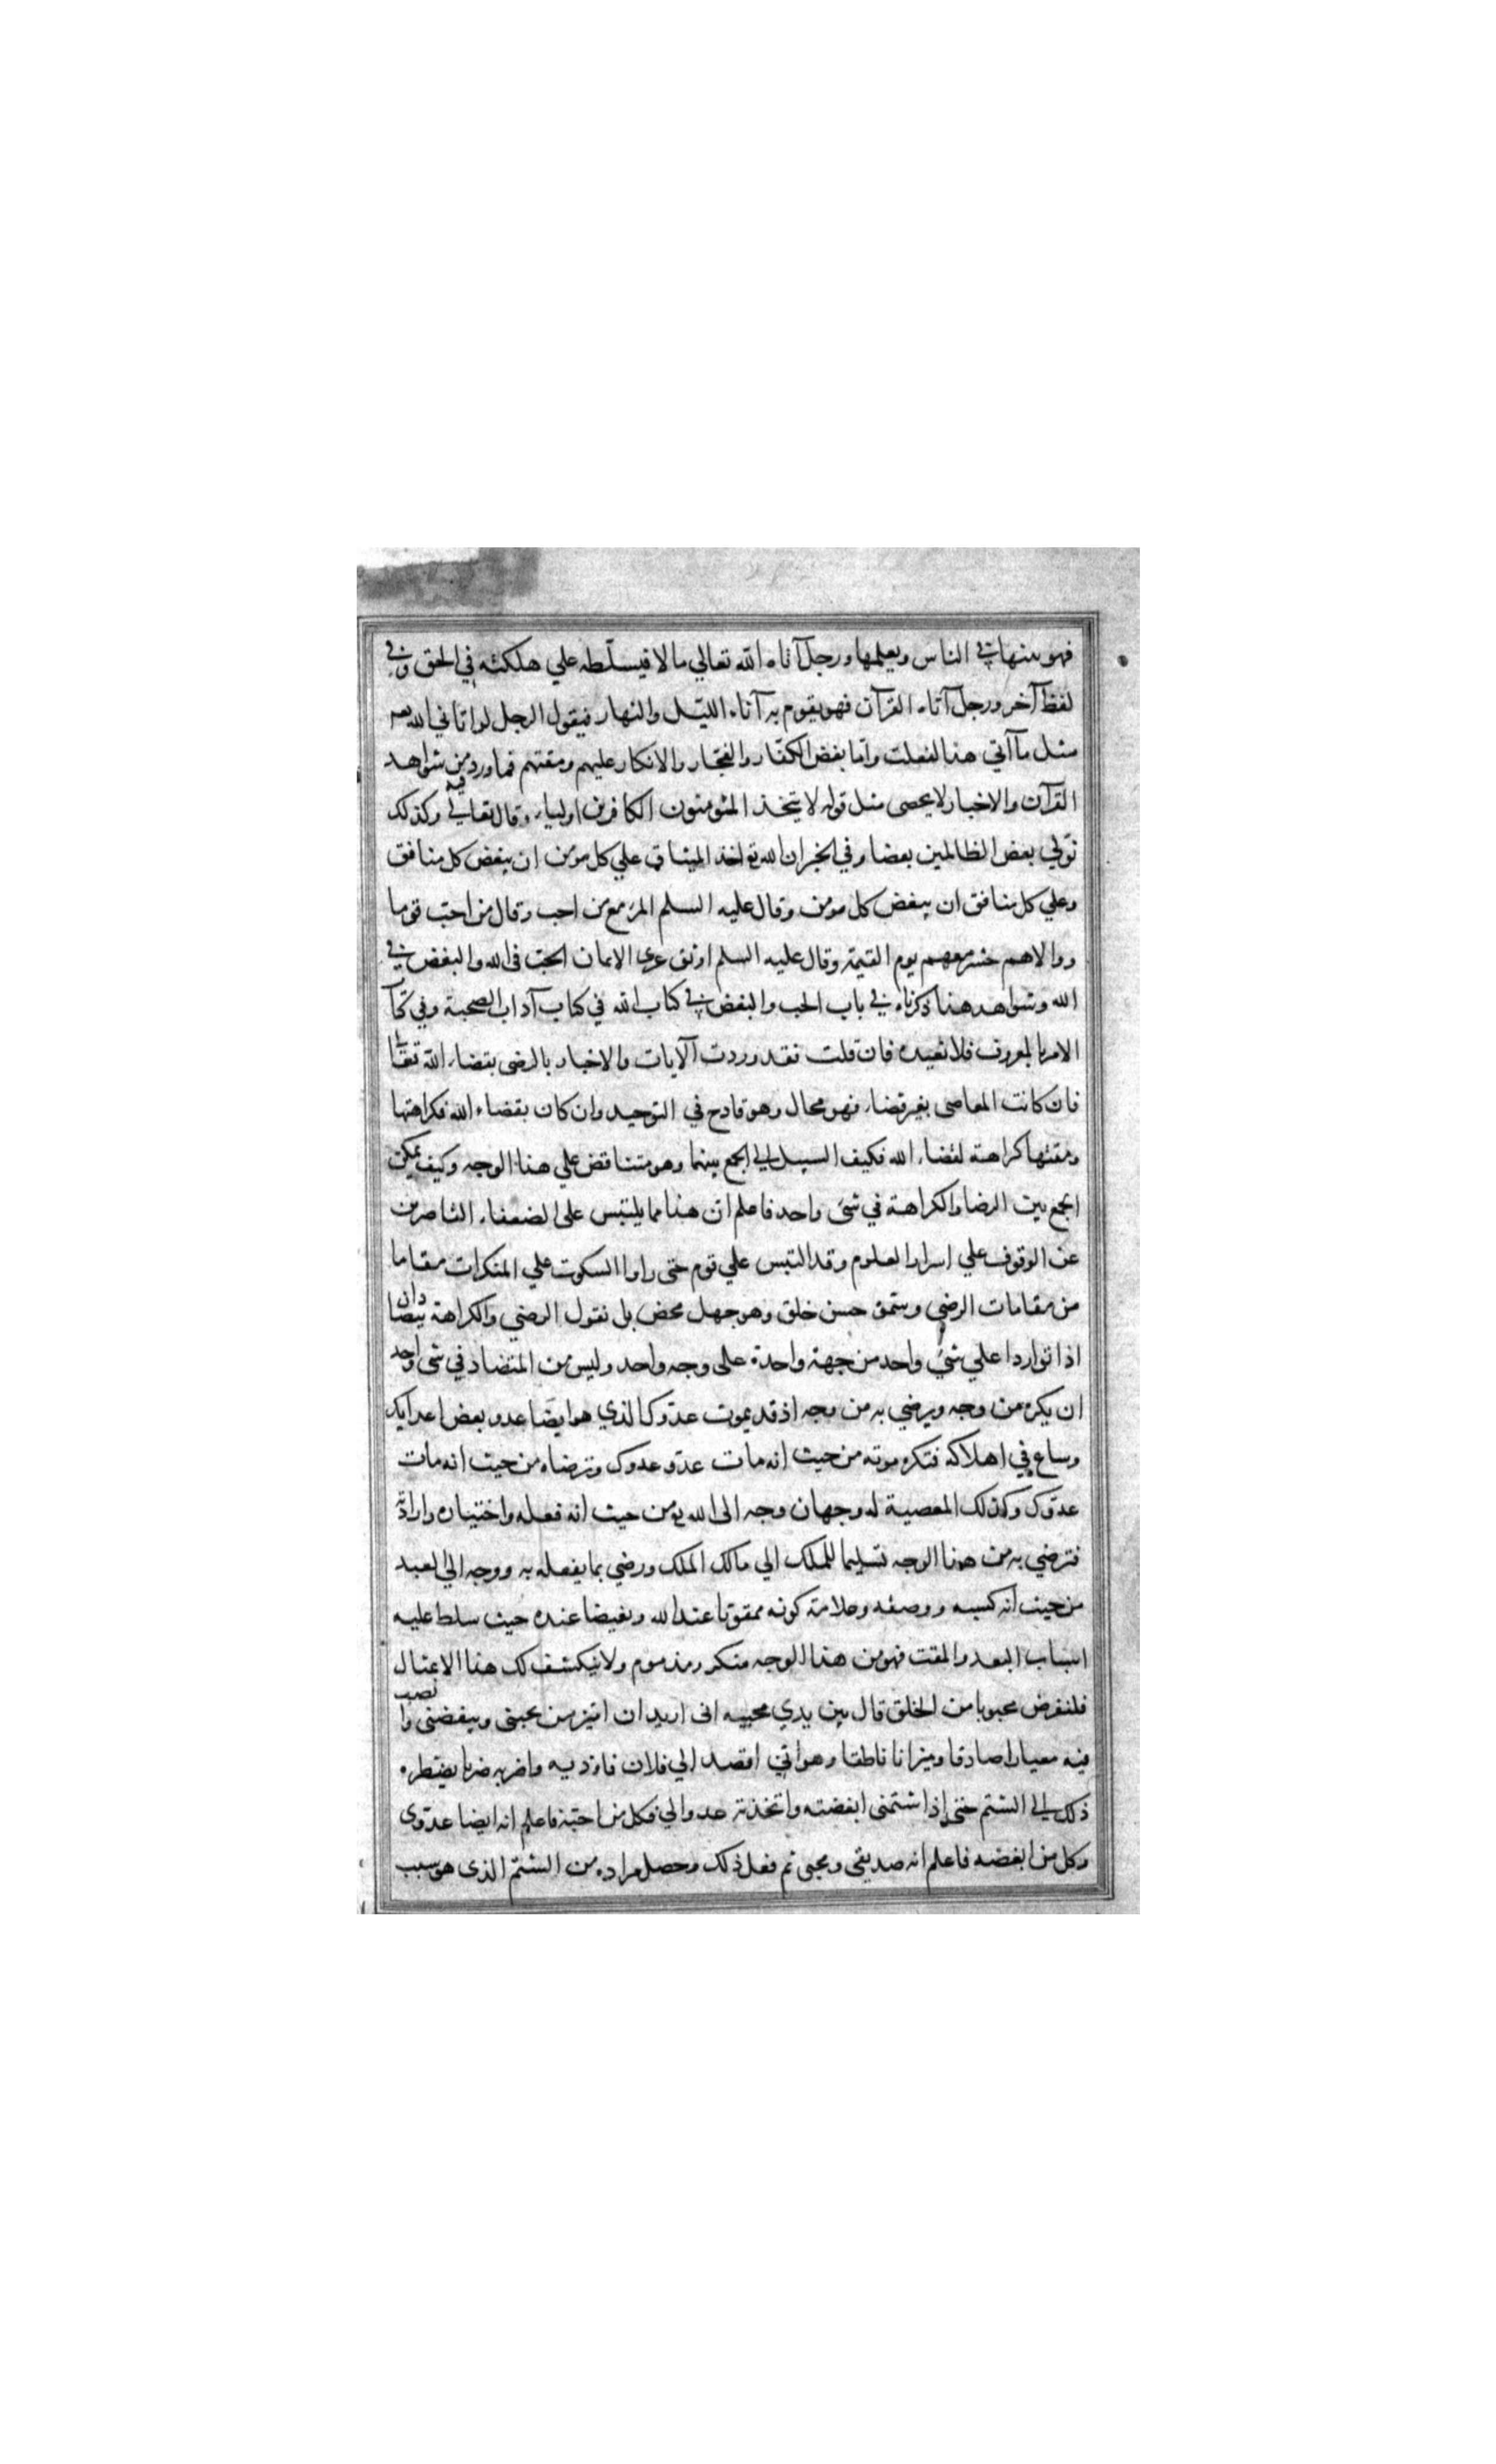 فهو يبثها في الناس ويعلمها ورجل آتاه الله تعالي مالا فيسلّطه علي هلكته في الحق وفي
لفظ آخر ورجل آتاه القرآن فهو يقوم به آناء الليل والنهار فيقول الرجل لو اتاني الله
مثل ما آتي هذا لفعلت وامّا بغض الكفّار والفجّار والانكار عليهم ومقتهم فما ورد من شواهد
القرآن والاخبار لا يحصى مثل قوله لا يتخذ المؤمنون الكافرين اولياء وقال تعالي وكذلك
نولي بعض الظالمين بعضا وفي الخبر ان الله تع اخذ الميثاق علي كل مومن ان يبغض كل منافق
وعلي كل منافق ان يبغض كل مومن وقال عليه السلم المرء مع من احب وقال من احبّ قوما
ووالاهم حشر معهم يوم القيمة وقال عليه السلم اوثق عرى الايمان الحبّ فى الله والبغض في
الله وشواهد هذا ذكرناه في باب الحب والبغض في كتاب الله في كتاب آداب الصحبة وفي كتاب
الامر بالمعروف فلا نعيده فان قلت فقد وردت الآيات والاخبار بالرضى بقضاء الله تعالى
فان كانت المعاصى بغير قضاء فهو محال وهو قادح في التوحيد وان كان بقضاء الله فكراهتها
ومقتها كراهة لقضاء الله فكيف السبيل الي الجمع بينهما وهو متناقض علي هذا الوجه وكيف يمكن
الجمع بين الرضا والكراهة في شئ واحد فاعلم ان هذا مما يلتبس على الضعفاء القاصرين
عن الوقوف علي اسرار العلوم وقد التبس علي قوم حتى راوا السكوت علي المنكرات مقاما
من مقامات الرضي وسمّوه حسن خلق وهو جهل محض بل نقول الرضي والكراهة يتضادان
اذا تواردا علي شئ واحد من جهة واحدة على وجه واحد وليس من المتضاد في شى واحد
ان يكره من وجه ويرضي به من وجه اذ قد يموت عدوّك الذي هو ايضا عدو بعض اعدايك
وساع في اهلاكه فتكره موته من حيث انه مات عدوّ عدوك وترضاه من حيث انه مات
عدوّك وكذلك المعصية له وجهان وجه الى الله تع من حيث انه فعله واختياره وارادته
فترضي به من هذا الوجه تسليما للملك الي مالك الملك ورضي بما يفعله به ووجه الي العبد
من حيث انه كسبه ووصفه وعلامة كونه ممقوتا عند الله وبغيضا عنده حيث سلط عليه
اسباب البعد والمقت فهو من هذا الوجه منكر ومذموم ولا ينكشف لك هذا الا بمثال
فلنفرض محبوبا من الخلق قال بين يدي محبيه انى اريد ان اميّز من يحبنى ويبغضنى وانصب
فيه معيارا صادقا وميزانا ناطقا وهو اني اقصد الي فلان فاوذيه واضربه ضربا يضطره
ذلك الي الشتم حتى اذا شتمنى ابغضته واتخذته عدوا لي فكل من احبّه فاعلم انه ايضا عدوّى
وكل من ابغضه فاعلم انه صديقى ومحبى ثم فعل ذلك وحصل مراده من الشتم الذى هو سبب